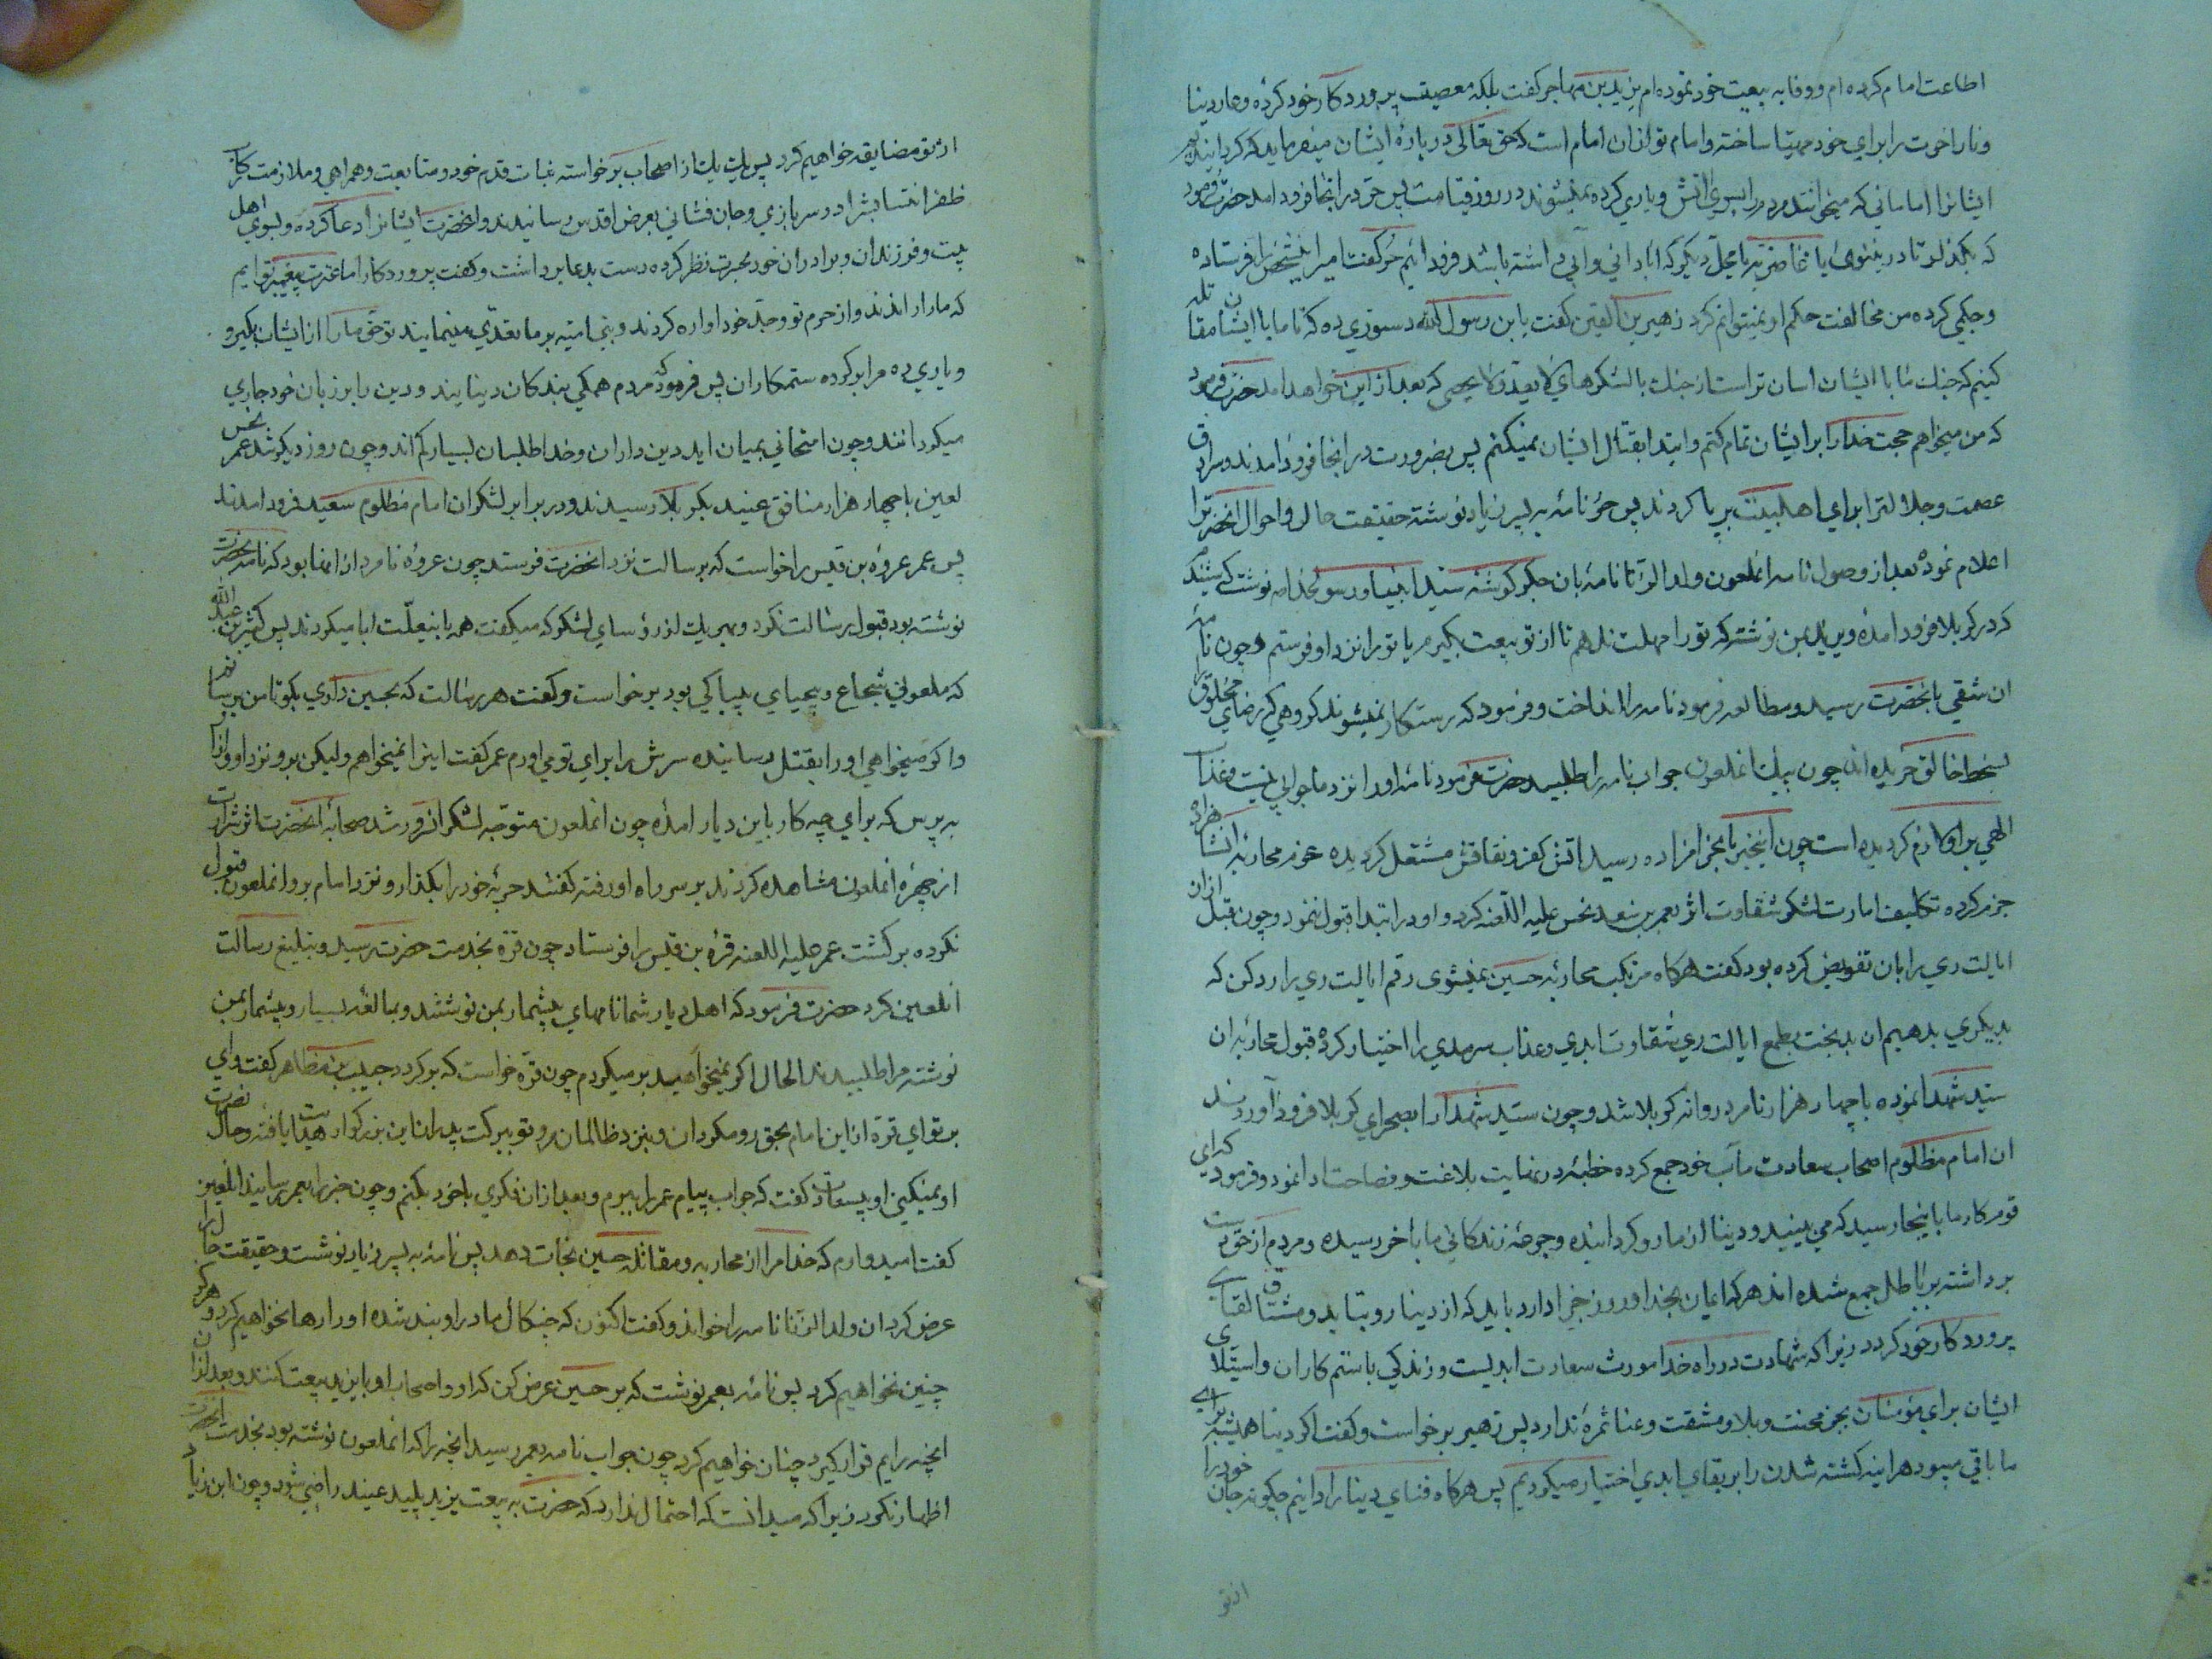 اطاعت امام کرده ام و وفا به بیعت خود نموده ام یزید بن مهاجر کفت بلکه معصیت پروردکار خود کرده و عار دنیا
و نار اخرت را برای خود مهیا ساخته و امام تو ازان امام است که حق تعالی درباره ایشان میفرماید که کردانیدیم
ایشانرا امامانی که میخوانند مردم را بسوی اتش و یاری کرده نمیشوند در روز قیامت پس حر در انجا فرود امد حضرت فرمود
که بکذار تا در نینوی یا غاضریه یا محل دیکر که ابادانی و آبی داشته باشد فرود ائیم حر کفت امیر این شخص را فرستاده
و حکمی کرده من مخالفت حکم او نمیتوانم کرد زهیر بن القین کفت یا بن رسول الله دستوری ده که تا ما با ایشان مقاتله
کنیم که جنک ما با ایشان اسان تر است از جنک با لشکرهای لا یعد و لا یحصی که بعد از این خواهد امد حضرت فرمود
که من میخواهم حجت خدا را بر ایشان تمام کنم و ابتدا بقتال ایشان نمیکنم پس بضرورت در انجا فرود امدند و سرادق
عصمت و جلالت را برای اهلبیت بر پا کردند پس حر نامه به پسر زیاد نوشته حقیقت حال و احوال انحضرت را
اعلام نمود بعد از وصول نامه انملعون ولد الزنا نامه بان جکر کوشه سید انبیا و رسولخدا نوشت که شنیدم
که در کربلا فرود امده و یزید بمن نوشته که تو را مهلت ندهم تا از تو بیعت بکیرم یا تو را نزد او فرستم و چون نامه
ان شقی بانحضرت رسید و مطالعه فرمود نامه را انداخت و فرمود که رستکار نمیشوند کروهی که رضای مخلوق را
بسخط خالق خریده اند چون پیک انملعون جواب نامه را طلبید حضرت فرمود نامه او را نزد ما جوابی نیست و عذاب
الهی بر او لازم کردیده است چون اینخبر بانحرامزاده رسید اتش کفر و نفاقش مشتعل کردیده عزم محاربه انشاهزاده
جزم کرده تکلیف امارت لشکر شقاوت اثر بعمر بن سعد نحس علیه اللعنه کرد و او در ابتدا قبول ننمود و چون قبل ازان
ایالت ری را بان تفویض کرده بود کفت هرکاه مرتکب محاربه حسین نمیشوی رقم ایالت ری را رد کن که
بدیکری بدهیم ان بدبخت بطمع ایالت ری شقاوت ابدی و عذاب سرمدی را اختیار کرده قبول محاربه ان
سید شهدا نموده با چهار هزار نامرد روانه کربلا شد و چون سید شهدا را بصحرای کربلا فرود آوردند
ان امام مظلوم اصحاب سعادت مآب خود جمع کرده خطبه در نهایت بلاغت و فصاحت ادا نمود و فرمود که ای
قوم کار ما باینجا رسید که می بینید و دنیا از ما رو کردانیده و جرعه زندکانی ما بآخر رسیده و مردم از حق دست
برداشته بر باطل جمع شده اند هر که ایمان بخدا و روز جزا دارد باید که از دنیا رو بتابد و مشتاق لقای
پروردکار خود کردد زیرا که شهادت در راه خدا مورث سعادت ابدیست و زندکی با ستم کاران و استیلای
ایشان برای مؤمنان بجز محنت و بلا و مشقت و عنا ثمره ندارد پس زهیر برخواست و کفت اکر دنیا همیشه برای
ما باقی میبود هراینه کشته شدن را بر بقای ابدی اختیار میکردیم پس هرکاه فنای دنیا را دانیم چکونه جان خود را
از تو
از تو مضایقه خواهیم کرد پس یک یک از اصحاب برخواسته ثبات قدم خود و متابعت و همراهی و ملازمت رکاب
ظفر انتسابش را در سربازی و جان فشانی بعرض اقدس رسانیدند و انحضرت ایشانرا دعا کرده و بسوی اهل
بیت و فرزندان و برادران خود بحسرت نظر کرده دست بدعا برداشت و کفت پروردکارا ما عترت پیغمبر توایم
که ما را راندند و از حرم تو و جد خود اواره کردند و بنی امیه بر ما تعدی مینمایند تو حق ما را از ایشان بکیر و
و یاری ده مرا بر کرده ستمکاران پس فرمود که مردم همکی بندکان دنیایند و دین را بر زبان خود جاری
میکردانند و چون امتحانی بمیان اید دین داران و خدا طلبان بسیار کم اند و چون روز دیکر شد عمر نحس
لعین با چهار هزار منافق عنید بکربلا رسیدند و در برابر لشکر ان امام مظلوم سعید فرود امدند
پس عمر عروة بن قیس را خواست که برسالت نزد انحضرت فرستد چون عروه نامرد از انها بود که نامه بحضرت
نوشته بود قبول رسالت نکرد و بهر یک از رؤسای لشکر که میکفت همه باینعلت ابا میکردند پس کثیر بن عبد الله
که ملعونی شجاع و بیحیای بیباکی بود برخواست و کفت هر رسالت که بحسین داری بکو تا من برسانم
و اکر میخواهی او را بقتل رسانیده سرش را برای تو می اورم عمر کفت اینرا نمیخواهم و لیکن برو نزد او و از او
به پرس که برای چه کار باین دیار امده چون انملعون متوجه لشکر انسرور شد صحابه انحضرت اثر شرارت
از چهره انملعون مشاهده کردند بر سر راه او رفته کفتند حربه خود را بکذار و نزد امام برو انملعون قبول
نکرده برکشت عمر علیه اللعنه قرة بن قیس را فرستاد چون قره بخدمت حضرت رسید و تبلیغ رسالت
انلعین کرد حضرت فرمود که اهل دیار شما نامهای بیشمار بمن نوشتند و مبالغه بسیار و بیشمار بمن
نوشته مرا طلبیدند الحال اکر نمیخواهید بر میکردم چون قره خواست که برکردد حبیب بن مظاهر کفت وای
بر تو ای قره از این امام بحق رو مکردان و بنزد ظالمان مرو تو ببرکت پدران این بزرکوار هدایت یافته و حال نصرت
او نمیکنی او بیسعادت کفت که جواب پیام عمر را ببرم و بعد ازان فکری باخود بکنم و چون خبر را بعمر رسانید انلعین
کفت امیدوارم که خدا مرا از محاربه و مقاتله حسین نجات دهد پس نامه به پسر زیاد نوشت و حقیقت حال را
عرض کرد ان ولد الزنا نامه را خواند و کفت اکنون که چنکال ما در او بند شده او را رها نخواهیم کرد و هرکز
چنین نخواهیم کرد پس نامه بعمر نوشت که بر حسین عرض کن که او و اصحاب او با یزید بیعت کنند و بعد ازان
انچه رایم قرار کیرد چنان خواهیم کرد چون جواب نامه بعمر رسید انچه را که انملعون نوشته بود بخدمت انحضرت
اظهار نکرد زیرا که میدانست که احتمال ندارد که حضرت به بیعت یزید پلید عنید راضی شود و چون ابن زیاد